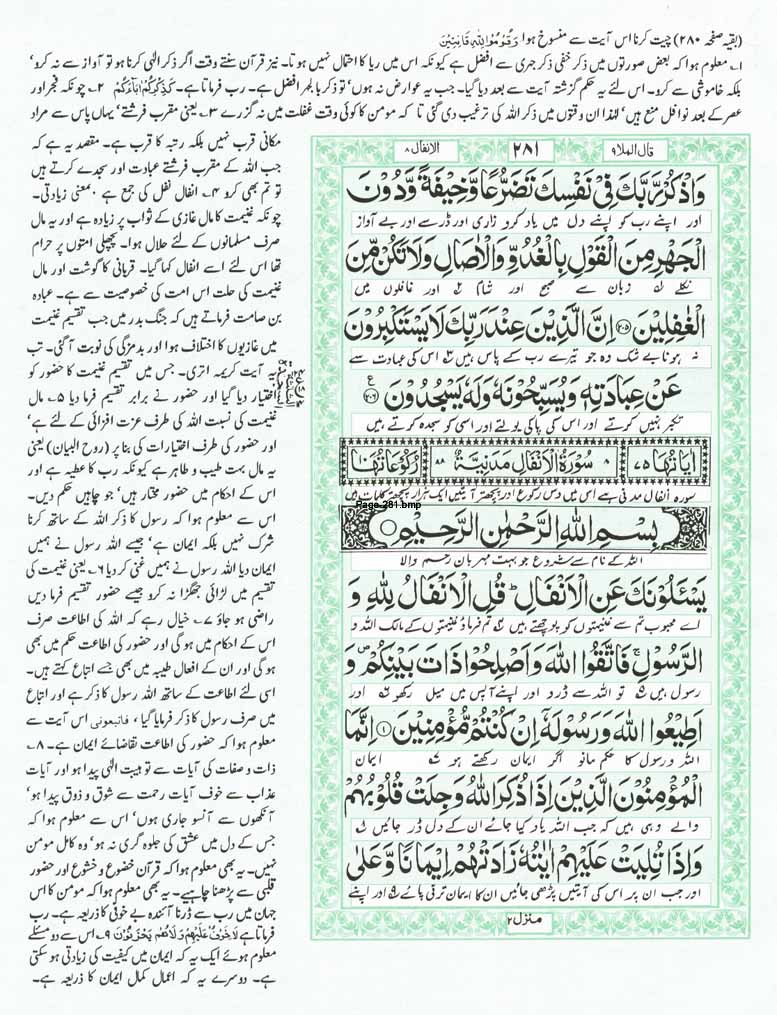 (بقیہ صفحہ ۲۸۰) چیت کرنا اس آیت سے منسوخ ہوا وَقُوْمُوْا لِلّٰهِ قَانِتِيْنَ
۱۔ معلوم ہوا کہ بعض صورتوں میں ذکر خفی ذکر جری سے افضل ہے کیونکہ اس میں ریا کا احتمال نہیں ہوتا۔ نیز قرآن سنتے وقت اگر ذکر الٰہی کرنا ہو تو آواز سے نہ کرو'
بلکہ خاموشی سے کرو۔ اس لئے یہ حکم گزشتہ آیت سے بعد دیا گیا۔ جب یہ عوارض نہ ہوں' تو ذکر بالجہر افضل ہے۔ رب فرماتا ہے۔ كَذِكْرِكُمْ اٰبَآءَكُمْ ۲۔ چونکہ فجر اور
عصر کے بعد نوافل منع ہیں' لہٰذا ان وقتوں میں ذکر اللہ کی ترغیب دی گئی تا کہ مومن کا کوئی وقت غفلت میں نہ گزرے ۳۔ یعنی مقرب فرشتے' یہاں پاس سے مراد
مکانی قرب نہیں بلکہ رتبہ کا قرب ہے۔ مقصد یہ ہے کہ
جب اللہ کے مقرب فرشتے عبادت اور سجدے کرتے ہیں
تو تم بھی کرو ۴۔ انفال نفل کی جمع ہے بمعنی زیادتی۔
چونکہ غنیمت کا مال غازی کے ثواب پر زیادہ ہے اور یہ مال
صرف مسلمانوں کے لئے حلال ہوا۔ پچھلی امتوں پر حرام
تھا اس لئے اسے انفال کہا گیا۔ قربانی کا گوشت اور مال
غنیمت کی حلت اس امت کی خصوصیت سے ہے۔ عبادہ
بن صامت فرماتے ہیں کہ جنگ بدر میں جب تقسیم غنیمت
میں غازیوں کا اختلاف ہوا اور بدمزگی کی نوبت آ گئی۔ تب
یہ آیت کریمہ اتری۔ جس میں تقسیم غنیمت کا حضور کو
اختیار دیا گیا اور حضور نے برابر تقسیم فرما دیا ۵۔ مال
غنیمت کی نسبت اللہ کی طرف عزت افزائی کے لئے ہے'
اور حضور کی طرف اختیارات کی بنا پر (روح البیان) یعنی
یہ مال بہت طیب و طاہر ہے کیونکہ رب کا عطیہ ہے اور
اس کے احکام میں حضور مختار ہیں' جو چاہیں حکم دیں۔
اس سے معلوم ہوا کہ رسول کا ذکر اللہ کے ساتھ کرنا
شرک نہیں بلکہ ایمان ہے' جیسے اللہ رسول نے ہمیں
ایمان دیا اللہ رسول نے ہمیں غنی کر دیا ۶۔ یعنی غنیمت کی
تقسیم میں لڑائی جھگڑا نہ کرو جیسے حضور تقسیم فرما دیں
راضی ہو جاؤ ۷۔ خیال رہے کہ اللہ کی اطاعت صرف
اس کے احکام میں ہو گی اور حضور کی اطاعت حکم میں بھی
ہو گی اور ان کے افعال طیبہ میں بھی جسے اتباع کہتے ہیں۔
اسی لئے اطاعت کے ساتھ اللہ رسول کا ذکر ہے اور اتباع
میں صرف رسول کا ذکر فرمایا گیا، فاتبعونی اس آیت سے
معلوم ہوا کہ حضور کی اطاعت تقاضائے ایمان ہے۔ ۸۔
ذات و صفات کی آیات سے تو ہیبت الٰہی پیدا ہو اور آیات
عذاب سے خوف آیات رحمت سے شوق و ذوق پیدا ہو'
آنکھوں سے آنسو جاری ہوں' اس سے معلوم ہوا کہ
جس کے دل میں عشق کی جلوہ گری نہ ہو' وہ کامل مومن
نہیں۔ یہ بھی معلوم ہوا کہ قرآن خضوع و خشوع اور حضور
قلبی سے پڑھنا چاہیے۔ یہ بھی معلوم ہوا کہ مومن کا اس
جہان میں رب سے ڈرنا آئندہ بے خوفی کا ذریعہ ہے۔ رب
فرماتا ہے لَاخَوْفٌ عَلَيْهِمْ وَلَاهُمْ يَحْزَنُوْنَ ۹۔ اس سے دو مسئلے
معلوم ہوئے ایک یہ کہ ایمان میں کیفیت کی زیادتی ہو سکتی
ہے۔ دوسرے یہ کہ اعمال کمال ایمان کا ذریعہ ہے۔
قال الملا۹ ۲۸۱ الانفال۸
وَاذْكُرْ رَّبَّكَ فِيْ نَفْسِكَ تَضَرُّعًا وَّخِيْفَةً وَّدُوْنَ
اور اپنے رب کو اپنے دل میں یاد کرو زاری اور ڈر سے اور بے آواز
الْجَهْرِ مِنَ الْقَوْلِ بِالْغُدُوِّ وَالْاٰصَالِ وَلَا تَكُنْ مِّنَ
نکلے زبان سے صبح اور شام اور غافلوں میں
الْغٰفِلِيْنَ ۝۲۰۵ اِنَّ الَّذِيْنَ عِنْدَ رَبِّكَ لَا يَسْتَكْبِرُوْنَ
نہ ہونا بے شک وہ جو تیرے رب کے پاس ہیں اس کی عبادت سے
عَنْ عِبَادَتِهٖ وَيُسَبِّحُوْنَهٗ وَلَهٗ يَسْجُدُوْنَ ۝۲۰۶ ع
تکبر نہیں کرتے اور اس کی پاکی بولتے اور اسی کو سجدہ کرتے ہیں
اٰيَاتُهَا ۷۵ ۸ سُوْرَةُ الْاَنْفَالِ مَدَنِيَّةٌ ۸۸ رُكُوْعَاتُهَا ۱۰
سورہ انفال مدنی ہے اس میں دس رکوع اور پچھتر آیتیں ایک ہزار پچھتر کلمات ہیں
Page-281.bmp
بِسْمِ اللّٰهِ الرَّحْمٰنِ الرَّحِيْمِ
اللہ کے نام سے شروع جو بہت مہربان رحم والا
يَسْـَٔلُوْنَكَ عَنِ الْاَنْفَالِ ؕ قُلِ الْاَنْفَالُ لِلّٰهِ وَ
اے محبوب تم سے غنیمتوں کو پوچھتے ہیں تم فرماؤ غنیمتوں کے مالک اللہ و
الرَّسُوْلِ ۚ فَاتَّقُوا اللّٰهَ وَاَصْلِحُوْا ذَاتَ بَيْنِكُمْ ۪ وَ
رسول ہیں تو اللہ سے ڈرو اور اپنے آپس میں میل رکھو اور
اَطِيْعُوا اللّٰهَ وَرَسُوْلَهٗۤ اِنْ كُنْتُمْ مُّؤْمِنِيْنَ ۝۱ اِنَّمَا
اللہ و رسول کا حکم مانو اگر ایمان رکھتے ہو ایمان
الْمُؤْمِنُوْنَ الَّذِيْنَ اِذَا ذُكِرَ اللّٰهُ وَجِلَتْ قُلُوْبُهُمْ
والے وہی ہیں کہ جب اللہ یاد کیا جائے ان کے دل ڈر جائیں
وَاِذَا تُلِيَتْ عَلَيْهِمْ اٰيٰتُهٗ زَادَتْهُمْ اِيْمَانًا وَّعَلٰى
اور جب ان پر اس کی آیتیں پڑھی جائیں ان کا ایمان ترقی پائے اور اپنے
منزل۲